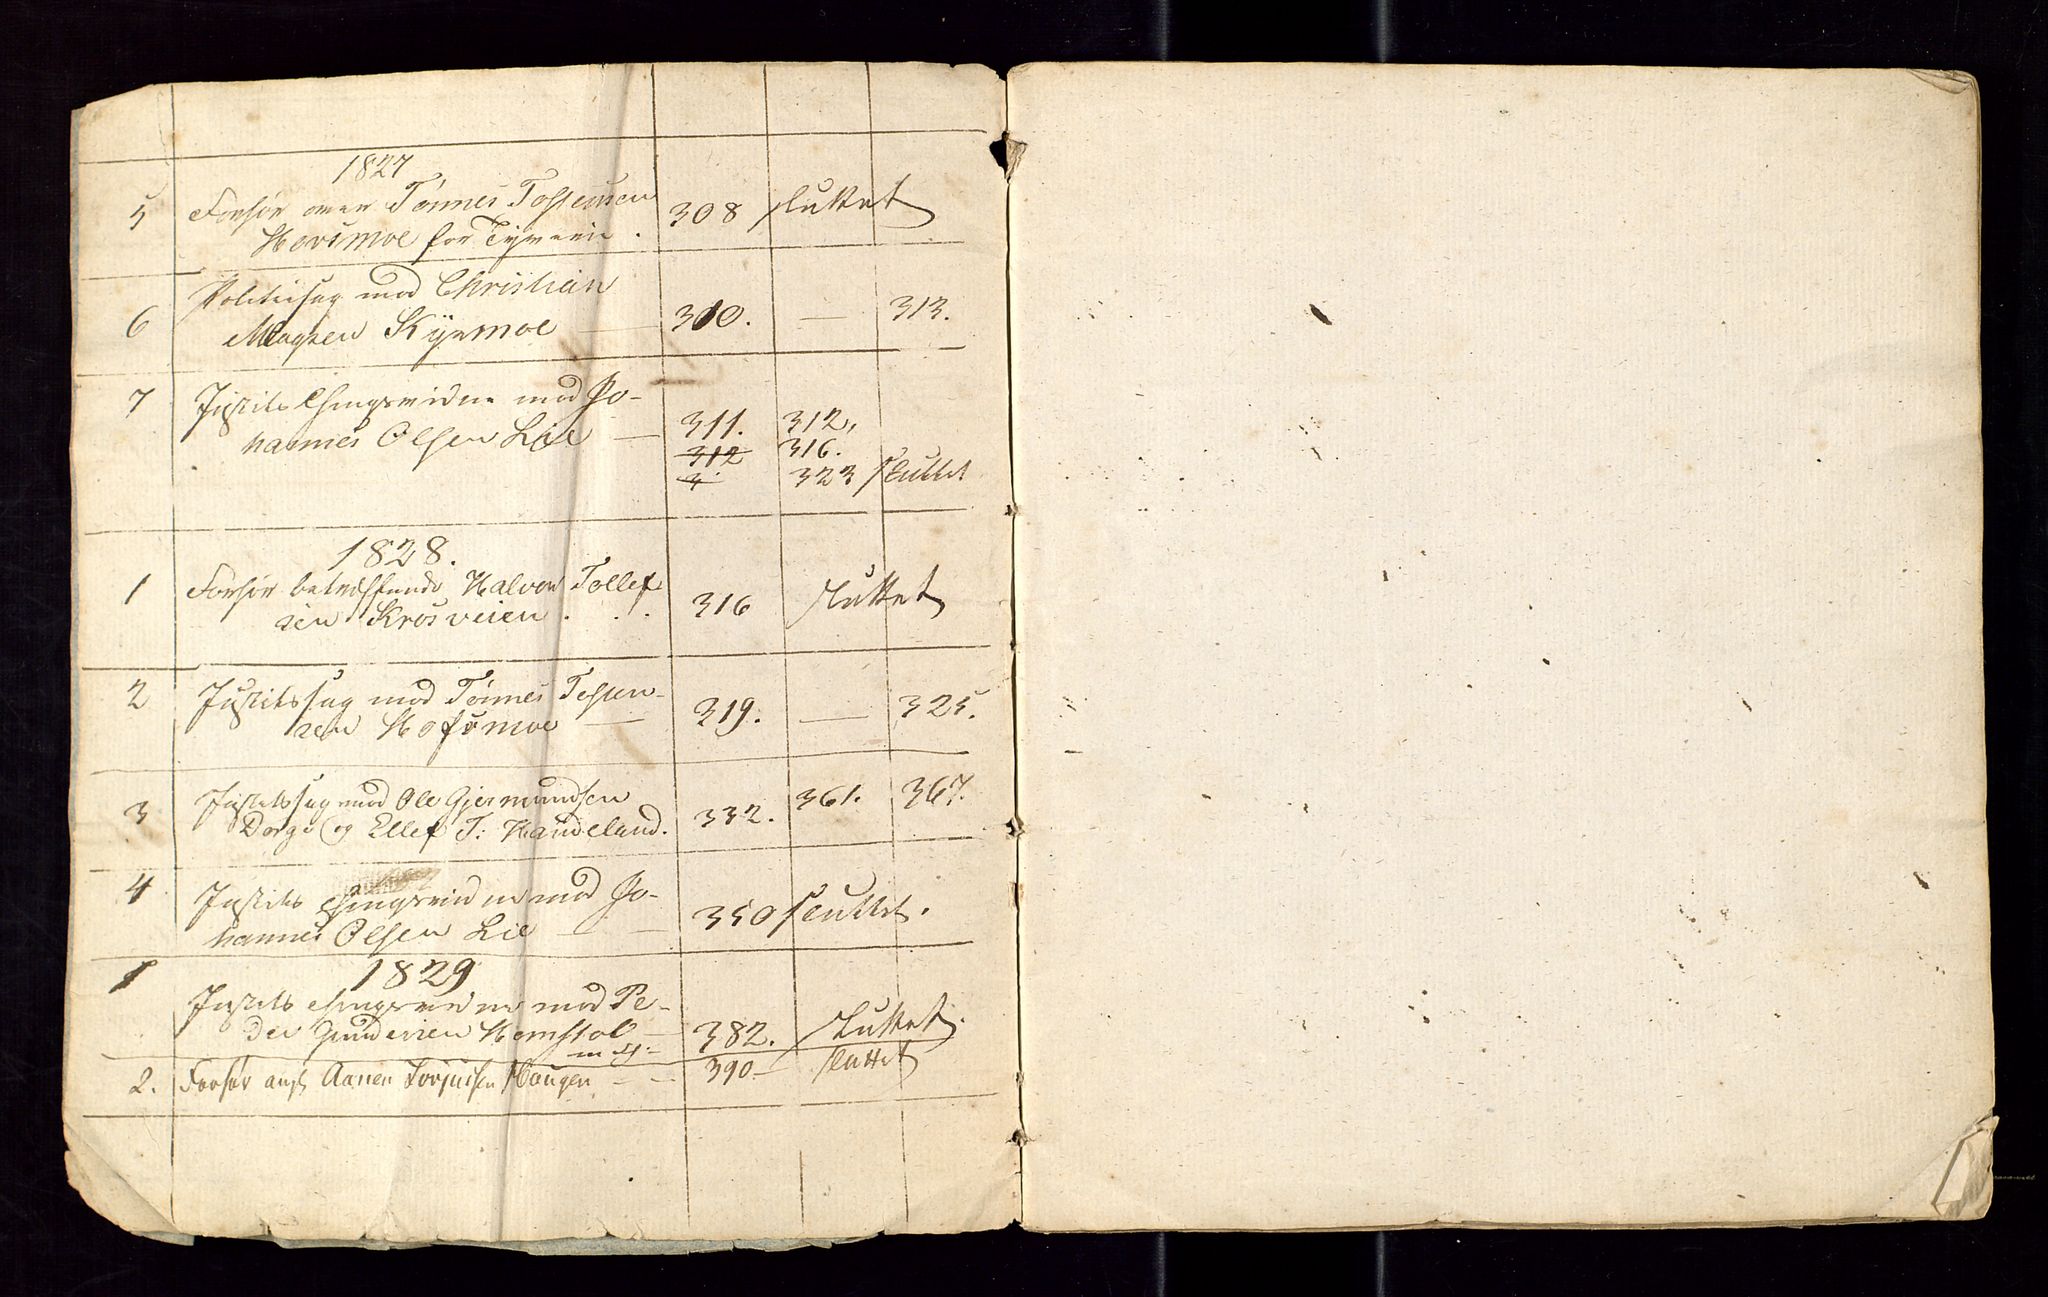 1827
5 Forhør over Tønnes Tostensen 308 sluttet
Horsmoe for Tyverie .
6 Politiesag mod Christian
Magsen Kyrmoe — 310. — 313.
7 Justits Thingsvidne mod Jo-
hannes Olsen Lie — 311. 312,
312 316.
3. 323 sluttet
1828.
1 Forhør betræffende Halvor Tollef
sen Krosveien . . . 316 sluttet
2 Justitssag mod Tønnes Tosten-
sen Hofsmoe — 319. — 325.
3 Justitssag mod Ole Gjermundsen 361. 367.
Dorge og Ellef T: Haudeland. 332.
4 Justits Thingsvidne mod Jo-
hannes Olsen Lie — — 350 sluttet.
1 1829
Justits Thingsvidne mod Pe-
der Gundersen Homstøl — 382. sluttet.
m fl: —
2. Forhør ang Aanen Torjusen Haugen — — 390 — sluttet